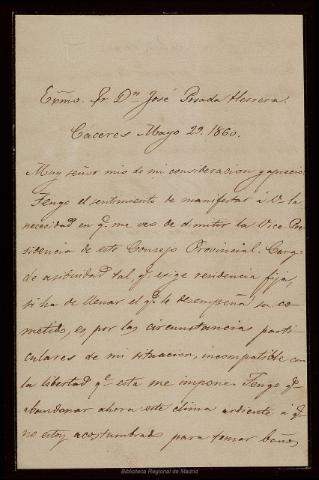 Exmo. Sr. Dn. José Posada Herrera.
Cáceres Mayo 29. 1860.
Muy señor mio de mi consideracion y aprecio:
Tengo el sentimiento de manifestar á V. la
necesidad en q. me veo de dimitir la Vice-Pre
sidencia de este Consejo Provincial. Cargo
de asibuidad tal, q. exige residencia fija,
si ha de llenar el q. lo desempeña su co-
metido, es por las circunstancias parti
culares de mi situacion, incompatible con
la libertad q. esta me impone. Tengo q.
abandonar ahora este clima ardiente á q.
no estoy acostumbrado para tomar baños
Biblioteca Regional de Madrid